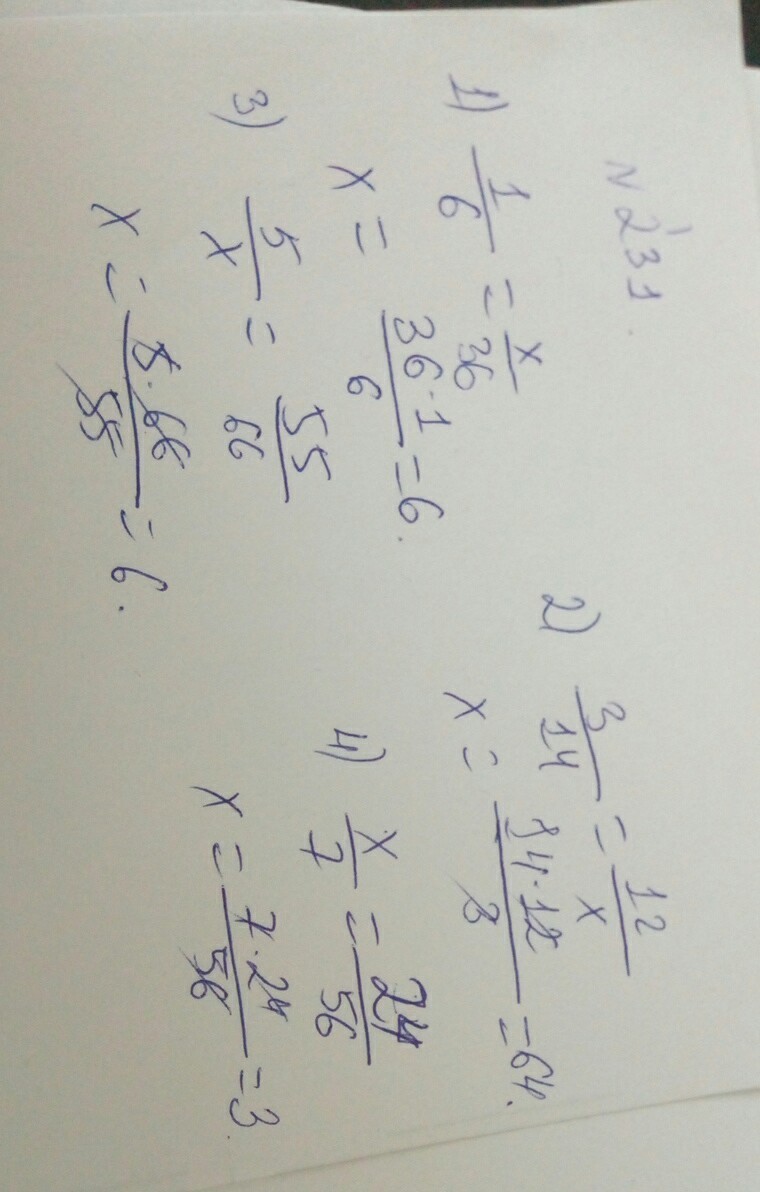 N 231.
1) 1/6 = x/36
x = 36·1/6 = 6.
2) 3/14 = 12/x
x = 14·12/3 = 64.
3) 5/x = 55/66
x = 5·66/55 = 6.
4) x/7 = 24/56
x = 7·24/56 = 3.